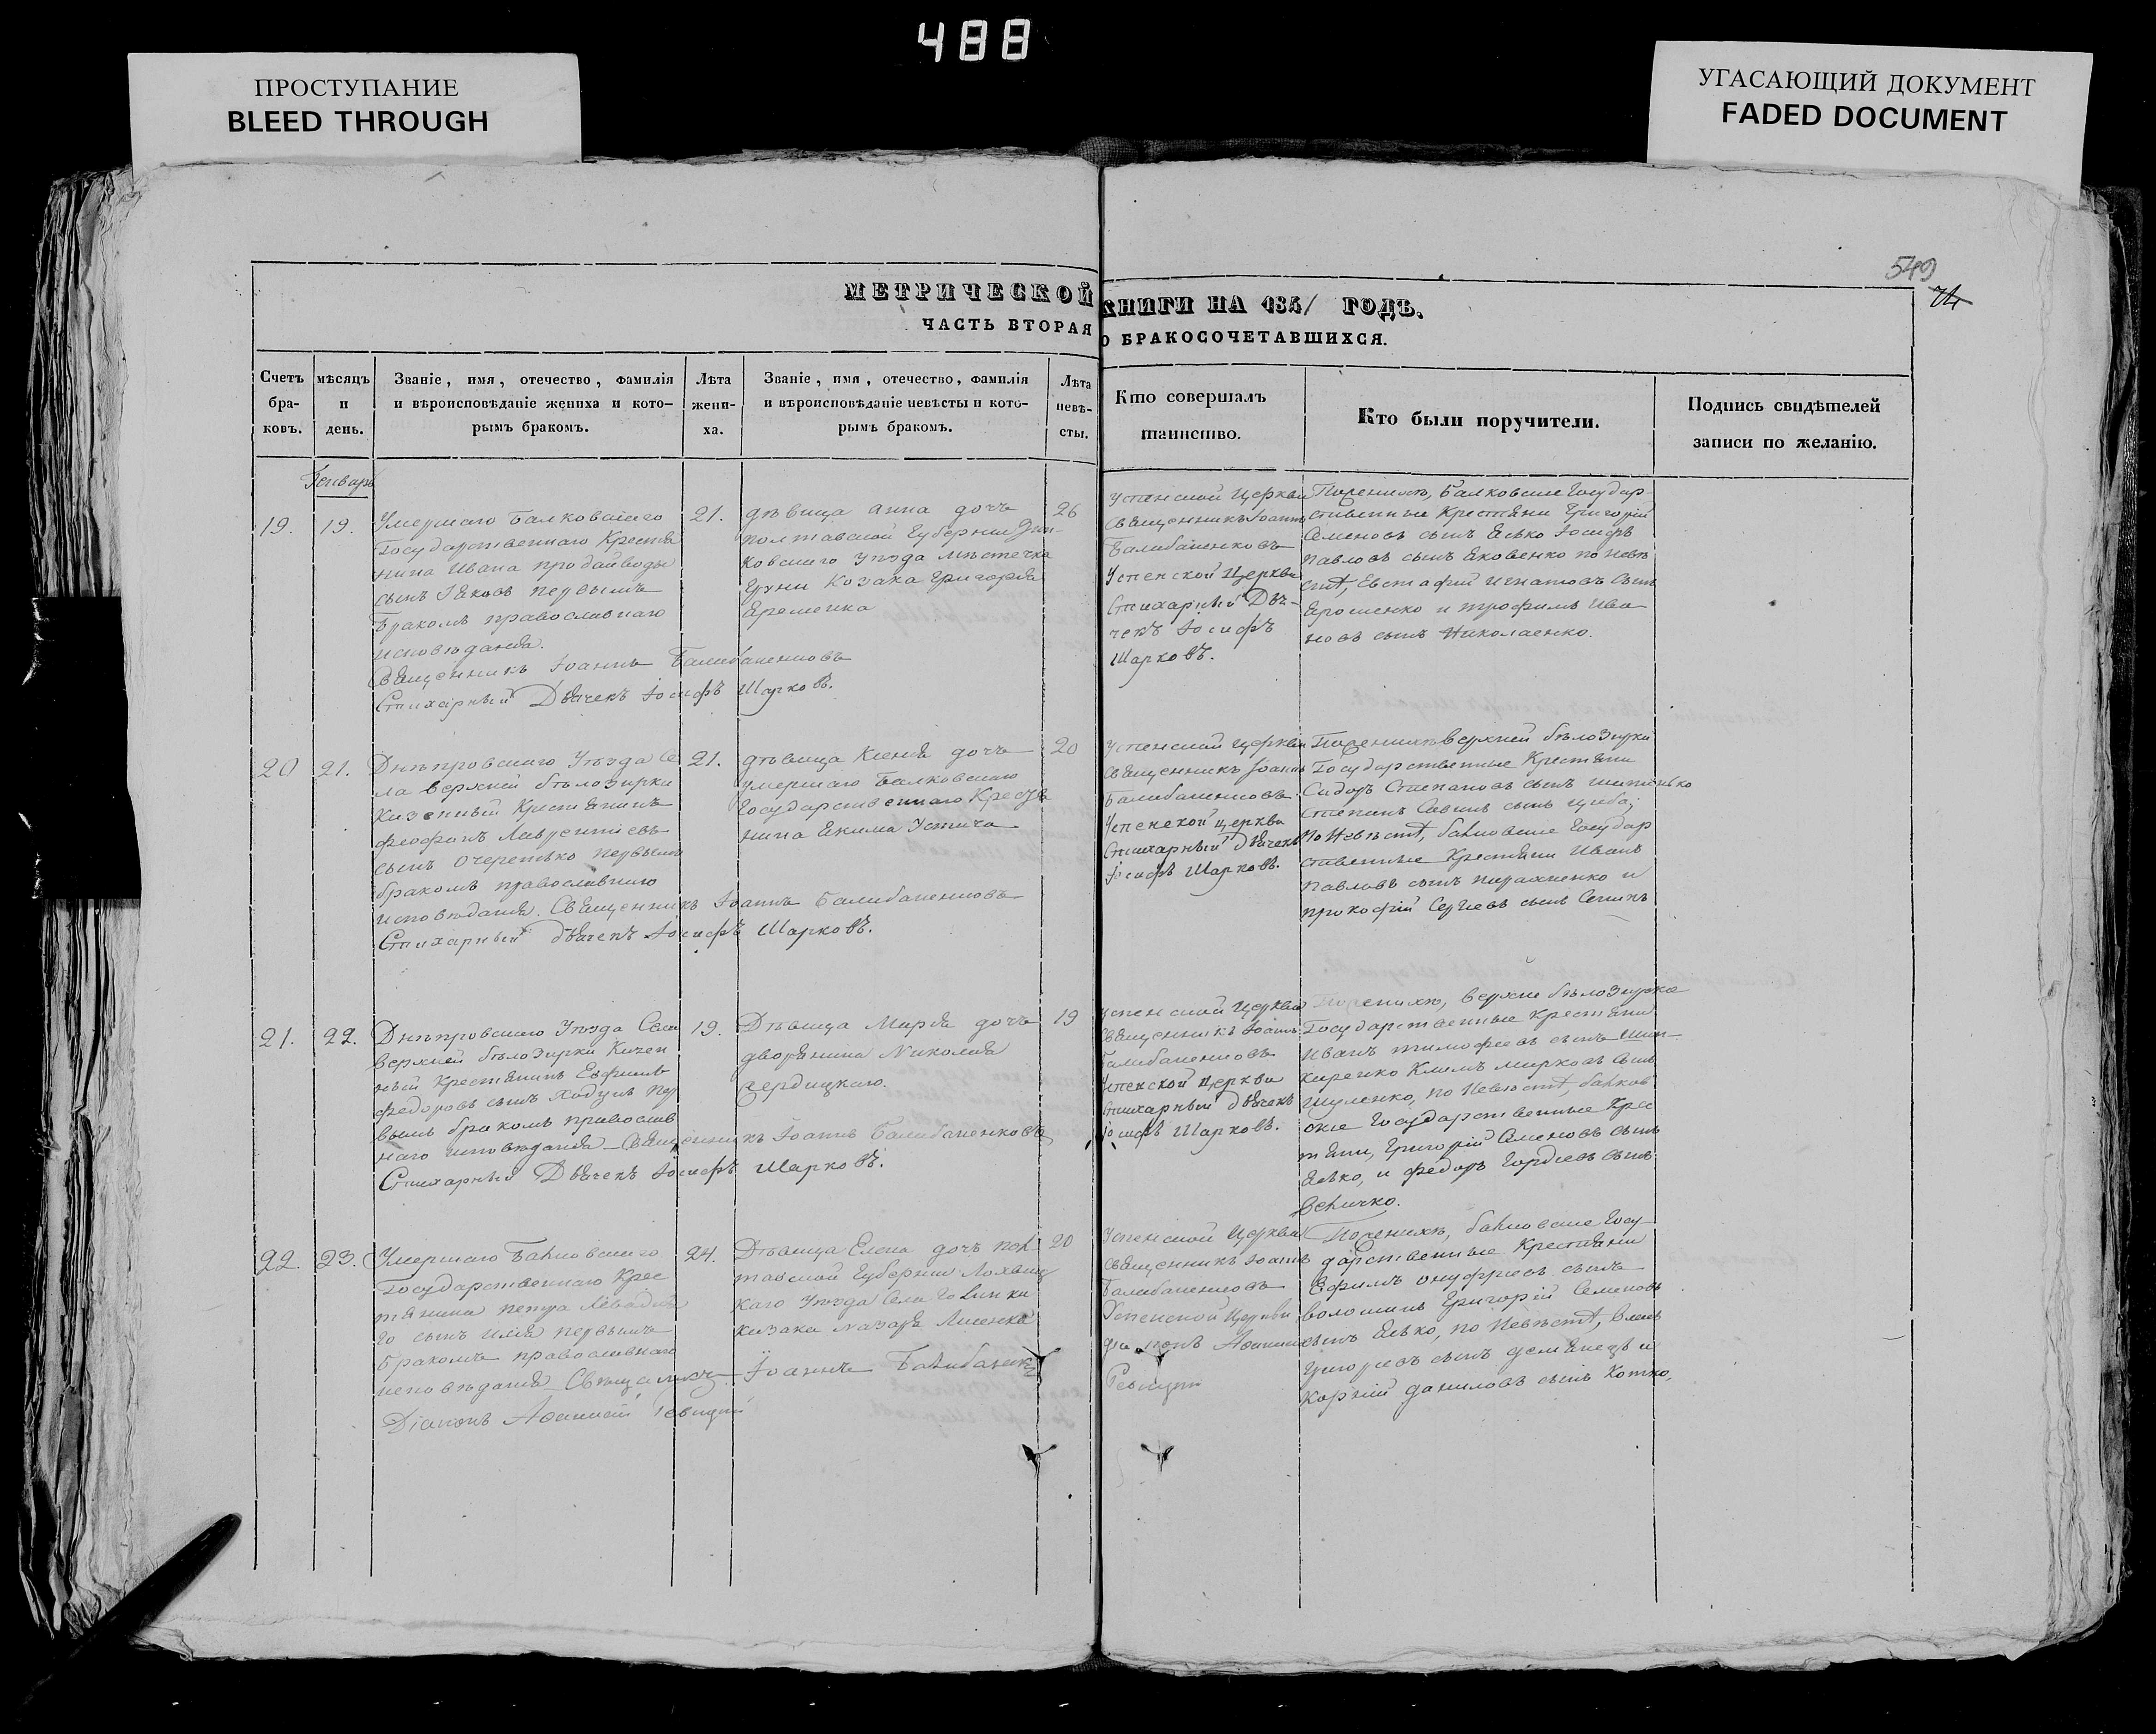 488
ПРОСТУПАНИЕ
BLEED THROUGH
УГАСАЮЩИЙ ДОКУМЕНТ
FADED DOCUMENT
549
МЕТРИЧЕСКОЙ КНИГИ НА 1851 ГОДЪ.
ЧАСТЬ ВТОРАЯ О БРАКОСОЧЕТАВШИХСЯ.
Счетъ
бра-
ковъ.
мѣсяцъ
и
день.
Званіе, имя, отечество, фамилія
и вѣроисповѣданіе жениха и кото-
рымъ бракомъ.
Лѣта
жени-
ха.
Званіе, имя, отечество, фамилія
и вѣроисповѣданіе невѣсты и кото-
рымъ бракомъ.
Лѣта
невѣ-
сты.
Кто совершалъ
таинство.
Кто были поручители.
Подпись свидѣтелей
записи по желанію.
Генварь
19.
19.
Умершаго Балковскаго
Государственнаго Крестья
нина Ивана продайводы
сынъ Іяковъ первымъ
бракомъ православнаго
исповѣданія.
Священникъ Іоаннъ Балабаненковъ
Стихарный Дьячекъ Іосифъ Шарковъ.
21.
дѣвица анна дочь
полтавской Губерніи Зѣнь-
ковскаго Уѣзда мѣстечка
Груни Козака Григорія
Еременка
26
Успенской Церкви
Священникъ Іоаннъ
Балабаненковъ
Успенской Церкви
Стихарный Дья-
чекъ Іосифъ
Шарковъ.
По женихѣ, Балковские Государ-
ственные Крестьяни Григорій
Семеновъ сынъ Осифъ
Павловъ сынъ Яковенко по невѣ
стѣ, Евстафій Игнатовъ сынъ
Ярошенко и трофимъ Ива
новъ сынъ Николаенко.
20
21.
Днѣпровскаго Уѣзда Се
ла верхней бѣлозирки
Казенный Крестьянинъ
феофанъ Лаврентіевъ
сынъ Очеретько первымъ
бракомъ православнаго
исповѣданія. Священникъ Іоаннъ Балабаненковъ
Стихарный дьячекъ Іосифъ Шарковъ.
21.
дѣвица Ксенія дочь
умершаго Балковскаго
Государственнаго Крестья
нина Екима Устича
20
Успенской Церкви
Священникъ Іоаннъ
Балабаненковъ
Успенской церкви
Стихарный дьячекъ
Іосифъ Шарковъ.
По женихѣ верхней бѣлозирки
Государственные Крестьяни
Сидоръ Степановъ сынъ
Степанъ Савинъ сынъ Цыба;
По Невѣстѣ, балковские Государ
ственные Крестьяни Иванъ
Павловъ сынъ и
прокофій Сергіевъ сынъ
21.
22.
Днѣпровскаго Уѣзда Села
верхней бѣлозирки Казен
ный Крестьянинъ
федоровъ сынъ Ходунъ пер
вымъ бракомъ православ
наго исповѣданія Священникъ Іоаннъ Балабаненковъ
Стихарный Дьячекъ Іосифъ Шарковъ.
19.
Дѣвица Марія дочь
дворянина Николая
19
Успенской Церкви
Священникъ Іоаннъ
Балабаненковъ
Успенской церкви
Стихарный дьячекъ
Іосифъ Шарковъ.
По женихѣ, верхне бѣлозирка
Государственные крестьяни
иванъ тимофеевъ сынъ
Климъ марковъ сынъ
Шуленко, по Невѣстѣ, балков
ские Государственные Крес
тьяни, Григорій Семеновъ сынъ
и федоръ Гордіевъ сынъ
величко.
22.
23.
Умершаго Балковскаго
Государственнаго Крес
тянина петра
го сынъ Илія первымъ
бракомъ православнаго
исповѣданія Іоаннъ
Діаконъ Афанасій
24.
Дѣвица Елена дочь пол
тавской Губерніи Лохвиц
каго Уѣзда Села
казака Назара Лисенка
20
Успенской Церкви
Священникъ Іоаннъ
Балабаненковъ
Успенской Церкви
По женихѣ, балковские Госу
дарственные Крестьяни
Ефимъ онуфріевъ сынъ
волошинъ Григорій Семеновъ
сынъ по Невѣстѣ,
Григорьевъ сынъ и
Корній даниловъ сынъ Котко,